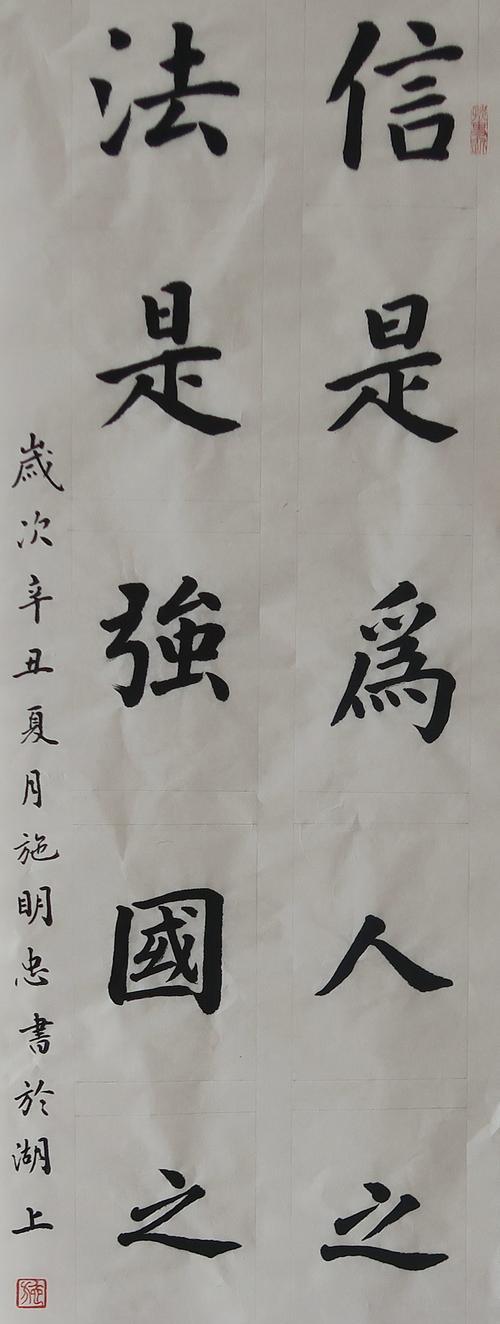 信是爲人之
法是強國之
歲次辛丑夏月施明忠書於湖上